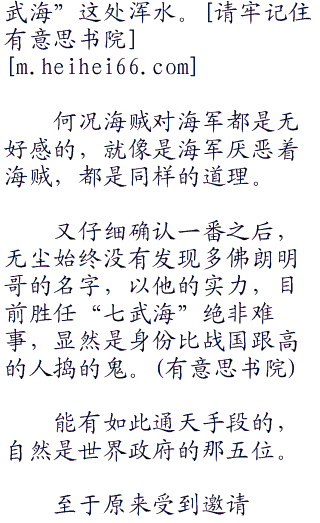 武海”这处浑水。[请牢记住
有意思书院]
[m.heihei66.com]
何况海贼对海军都是无
好感的，就像是海军厌恶着
海贼，都是同样的道理。
又仔细确认一番之后，
无尘始终没有发现多佛朗明
哥的名字，以他的实力，目
前胜任“七武海”绝非难
事，显然是身份比战国跟高
的人捣的鬼。(有意思书院)
能有如此通天手段的，
自然是世界政府的那五位。
至于原来受到邀请